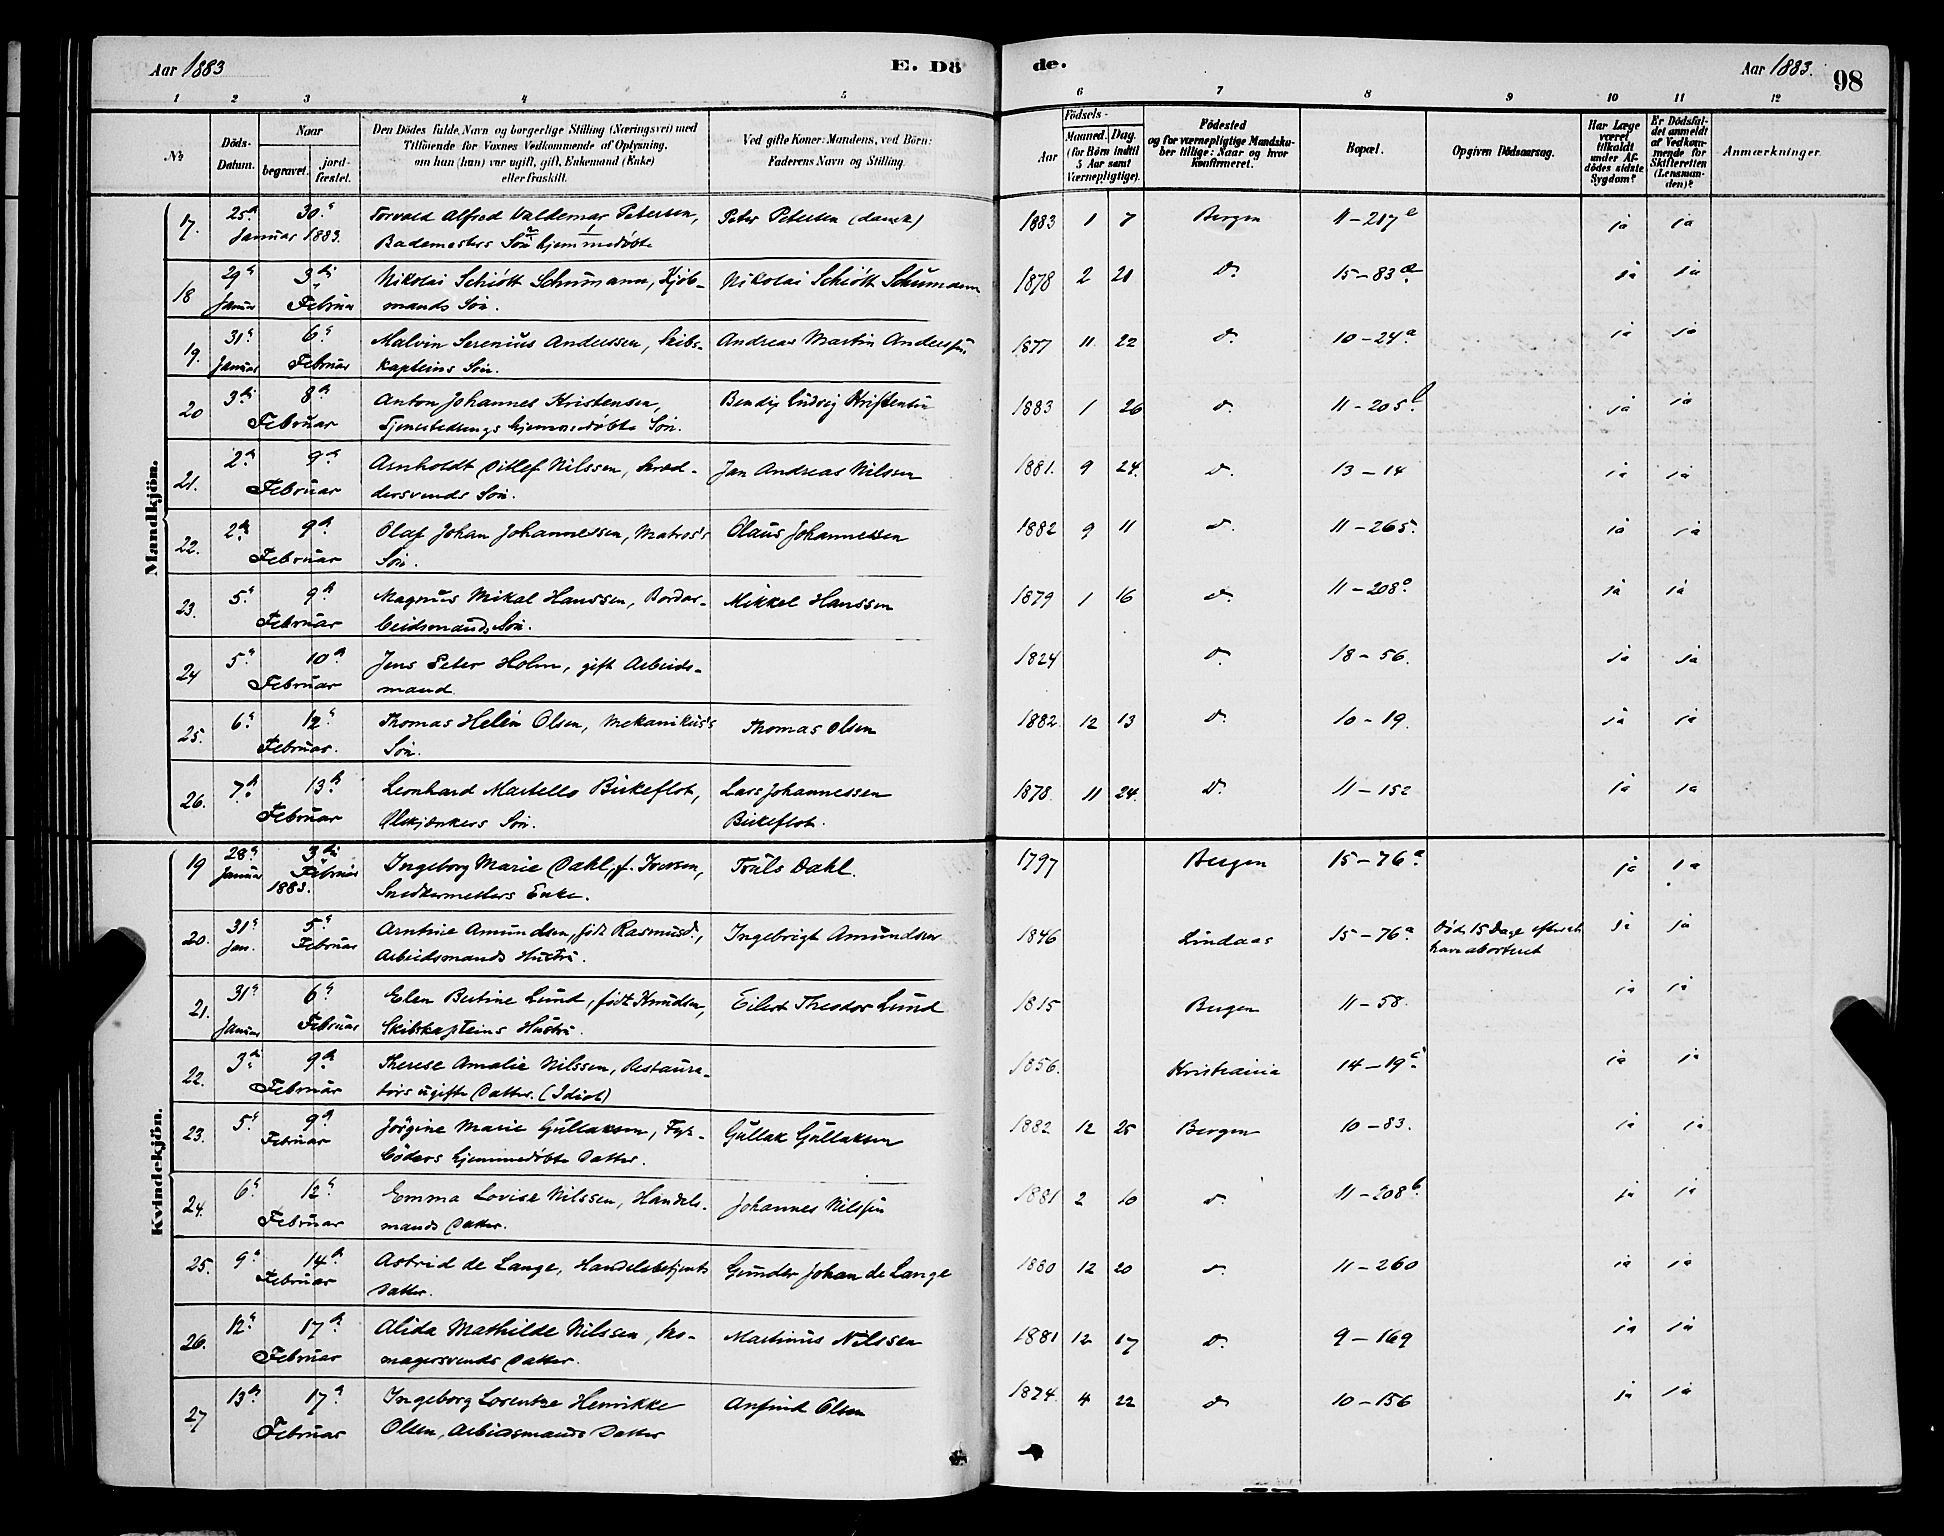 Aar 1883
E. Dö
de.
Aar 1883.
98
1 2 3 4 5 6 7 8 9 10 11 12
No.
Döds-Datum.
Naar
begravet.
jord-fæstet.
Den Dödes fulde Navn og borgerlige Stilling (Næringsvei) med
Tilföiende for Voxnes Vedkommende af Oplysning,
om han (hun) var ugift, gift, Enkemand (Enke)
eller fraskilt.
Ved gifte Koner: Mandens, ved Börn:
Faderens Navn og Stilling.
Födsels-
Aar
Maaned. Dag.
(for Börn indtil
5 Aar samt
Værnepligtige).
Födested
og for værnepligtige Mandska-
ber tillige: Naar og hvor
konfirmeret.
Bopæl.
Opgiven Dödsaarsag.
Har Læge
været
tilkaldt
under Af-
dödes sidste
Sygdom?
Er Dödsfal-
det anmeldt
af Vedkom-
mende for
Skifteretten
(Lensman-
den)?
Anmærkninger.
Mandkjön.
17. 25de 30te Torvald Alfred Valdemar Petersen, Peter Petersen (dansk) 1883 1 7 Bergen 11-217 ja ja
Januar 1883. Bademesters Sön hjemmedöbte
18 29de 3die Nikolai Schiött Schumann, Kjöb- Nikolai Schiött Schumann 1878 2 21 Do. 15-83 ja ja
Januar Februar mands Sön.
19. 31te 6te Malvin Serenius Anderssen, Skibs- Andreas Martin Anderssen 1877 11 22 Do. 10-24a ja ja
Januar Februar kapteins Sön.
20 3die 8de Anton Johannes Kristensen, Bendix Ludvig Kristensen 1883 1 26 Do. 11-205 ja ja
Februar Tjenestedrengs hjemmedöbte Sön.
21. 2den 9de Arnholdt Ditlef Nilssen, Skræd- Jan Andreas Nilssen 1881. 9 24. Do. 13-14 ja ja
Februar dersvends Sön.
22. 2den 9de Olaf Johan Johannessen, Matros's Olaus Johannessen 1882 9 11 Do. 11-265. ja ja
Februar Sön.
23. 5te 9de Magnus Mikal Hanssen, Bordar- Mikkel Hanssen 1879 1 16 Do. 11-208 ja ja
Februar beidsmands Sön.
24 5te 10de Jens Peter Holm, gift Arbeids- 1824 Do. 18-56. ja ja
Februar mand.
25. 6te 12te Thomas Helin Olsen, Mekanikus's Thomas Olsen 1882. 12 13 Do. 10-19. ja ja
Februar. Sön.
26. 7de 13de Leonhard Martello Birkeflot, Lars Johannessen 1878. 11 24. Do. 11-152 ja ja
Februar Ölskjænkers Sön. Birkeflot.
Kvindekjön.
19 28de 3die Ingeborg Marie Dahl, f. Iversen, Truls Dahl. 1797 Bergen 15-76a ja ja
Januar Februar Snedkermesters Enke.
1883.
20. 31te 5te Arntine Amundsen, födt Rasmusd., Ingebrigt Amundsen 1846 Lindaas 15-76a Död 15 Dage efter at ja ja
Jan. Februar Arbeidsmands Hustru. have aborteret
21. 31te 6te Elen Bertine Lund, födt Knudsen, Eilert Theodor Lund 1815 Bergen 11-58. ja ja
Januar Februar Skibskapteins Hustru.
22. 3die 9de Therese Amalie Nilssen, Restaura- 1856. Kristiania 14-19 ja ja
Februar törs ugifte Datter. (Idiot)
23. 5te 9de Jörgine Marie Gullaksen, Fyr- Gullak Gullaksen 1882 12 25 Bergen 10-83. ja ja
Februar böders hjemmedöbte Datter.
24. 6te 12te Emma Lovise Nilssen, Handels- Johannes Nilssen 1881 2 10 Do. 11-208b. ja ja
Februar mands Datter.
25. 9de 14de Astrid de Lange, Handelsbetjents Gunder Johan de Lange 1880 12 20 Do. 11-260 ja ja
Februar Datter.
26. 12te 17de Alida Mathilde Nilssen, Sko- Martinus Nilssen 1881 12 17 Do. 9-169 ja ja
Februar magersvends Datter.
27 13de 17de Ingeborg Lorentze Henrikke Anfind Olsen 1874. 4 22 Do. 10-156 ja ja
Februar Olsen, Arbeidsmands Datter